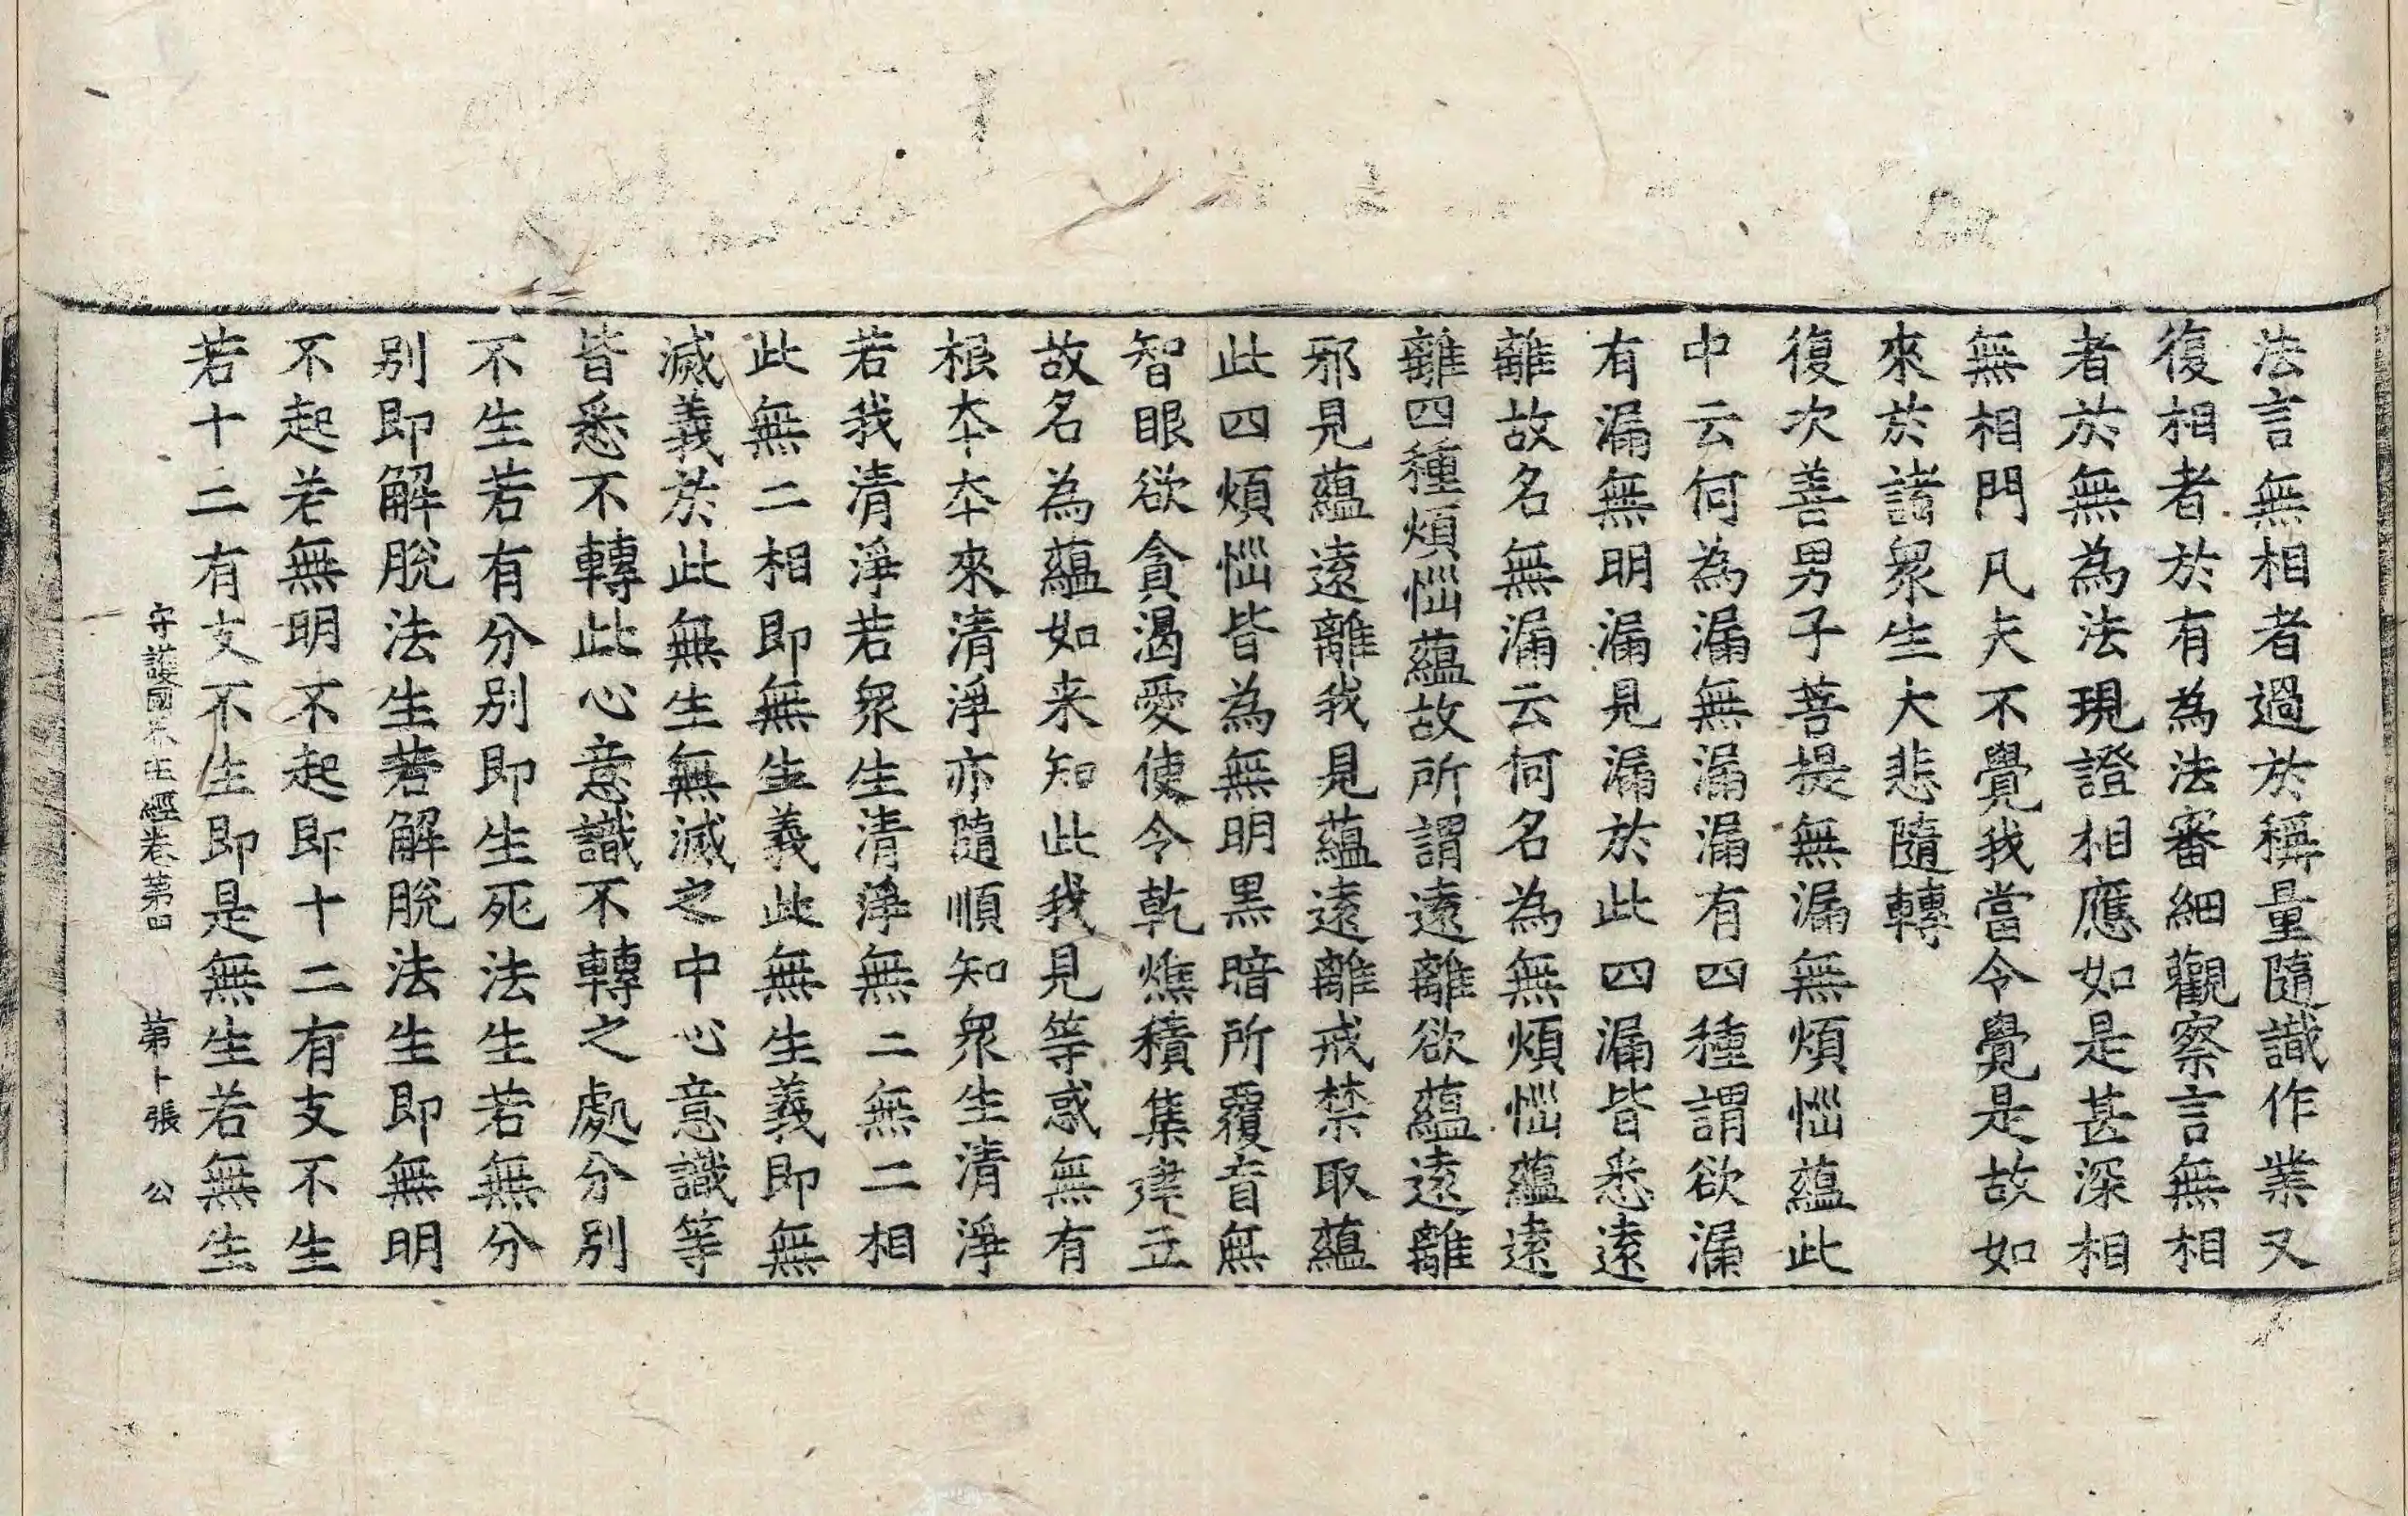 法言無相者過於稱量隨識作業又
復相者於有為法審細觀察言無相
者於無為法現證相應如是甚深相
無相門凡夫不覺我當令覺是故如
來於諸衆生大悲隨轉
復次善男子菩提無漏無煩惱蘊此
中云何為漏無漏漏有四種謂欲漏
有漏無明漏見漏於此四漏皆悉遠
離故名無漏云何名為無煩惱蘊遠
離四種煩惱蘊故所謂遠離欲蘊遠離
邪見蘊遠離我見蘊遠離戒禁取蘊
此四煩惱皆為無明黑暗所覆盲無
智眼欲貪渴愛使令乾燋積集建立
故名為蘊如来知此我見等惑無有
根夲夲來清淨亦隨順知衆生清淨
若我清淨若衆生清淨無二無二相
此無二相即無生義此無生義即無
滅義於此無生無滅之中心意識等
皆悉不轉此心意識不轉之處分別
不生若有分別即生死法生若無分
別即解脫法生若解脫法生即無明
不起若無明不起即十二有支不生
若十二有支不生即是無生若無生
守護國界主經卷第四 第卜張 公